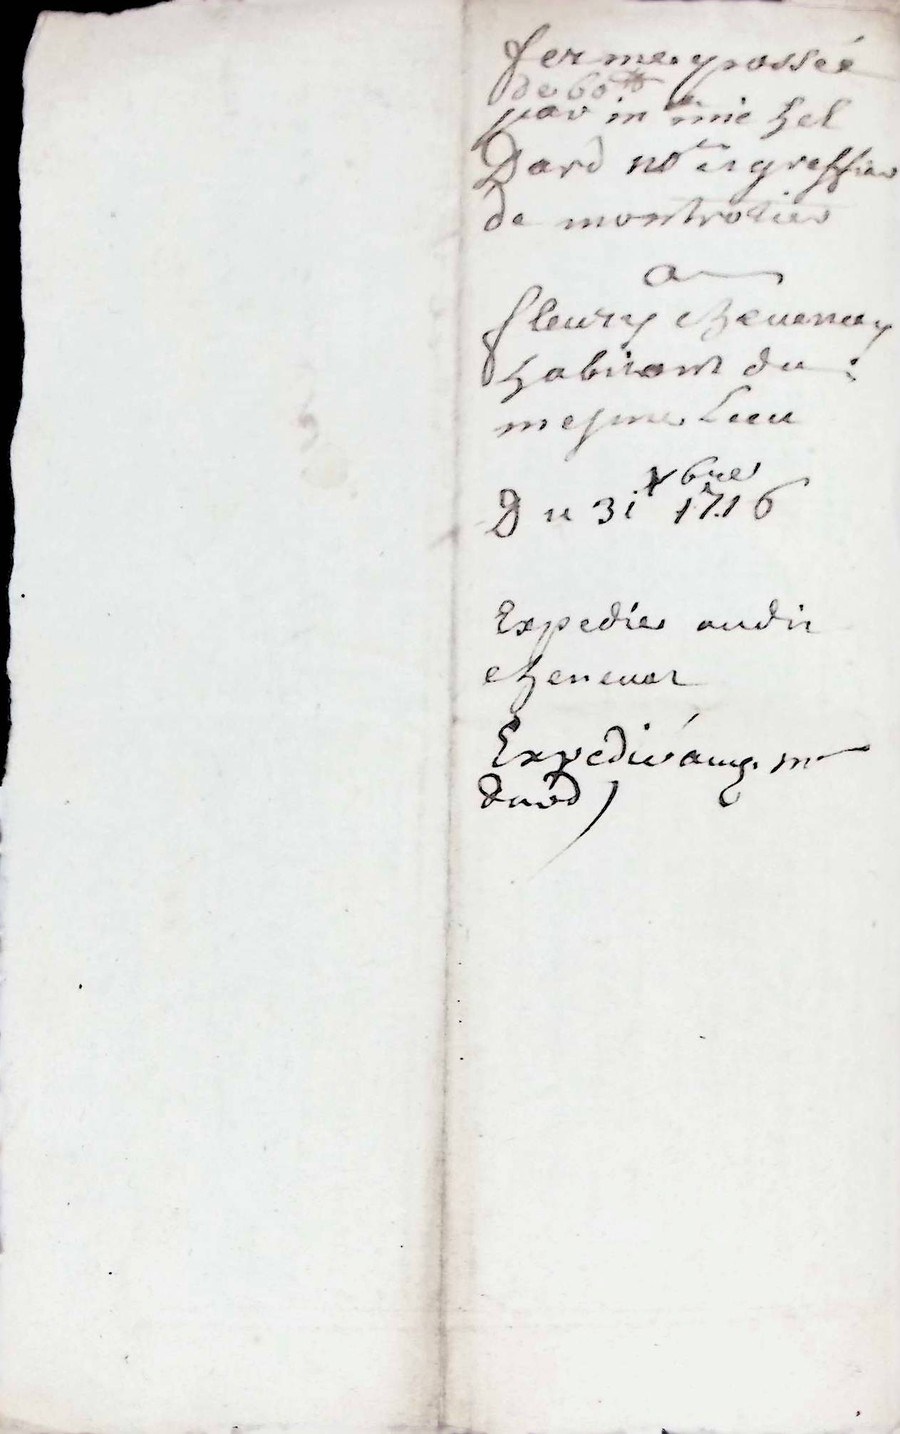 ferme passée
de 60 ₶
par m^e michel
Dard no^re et greffier
de montrotier
a
fleury chavanay
habitant du
mesme lieu
Du 31 xbre 1716
Expedié audit
chenevar
Expedié aug. m^r
dard